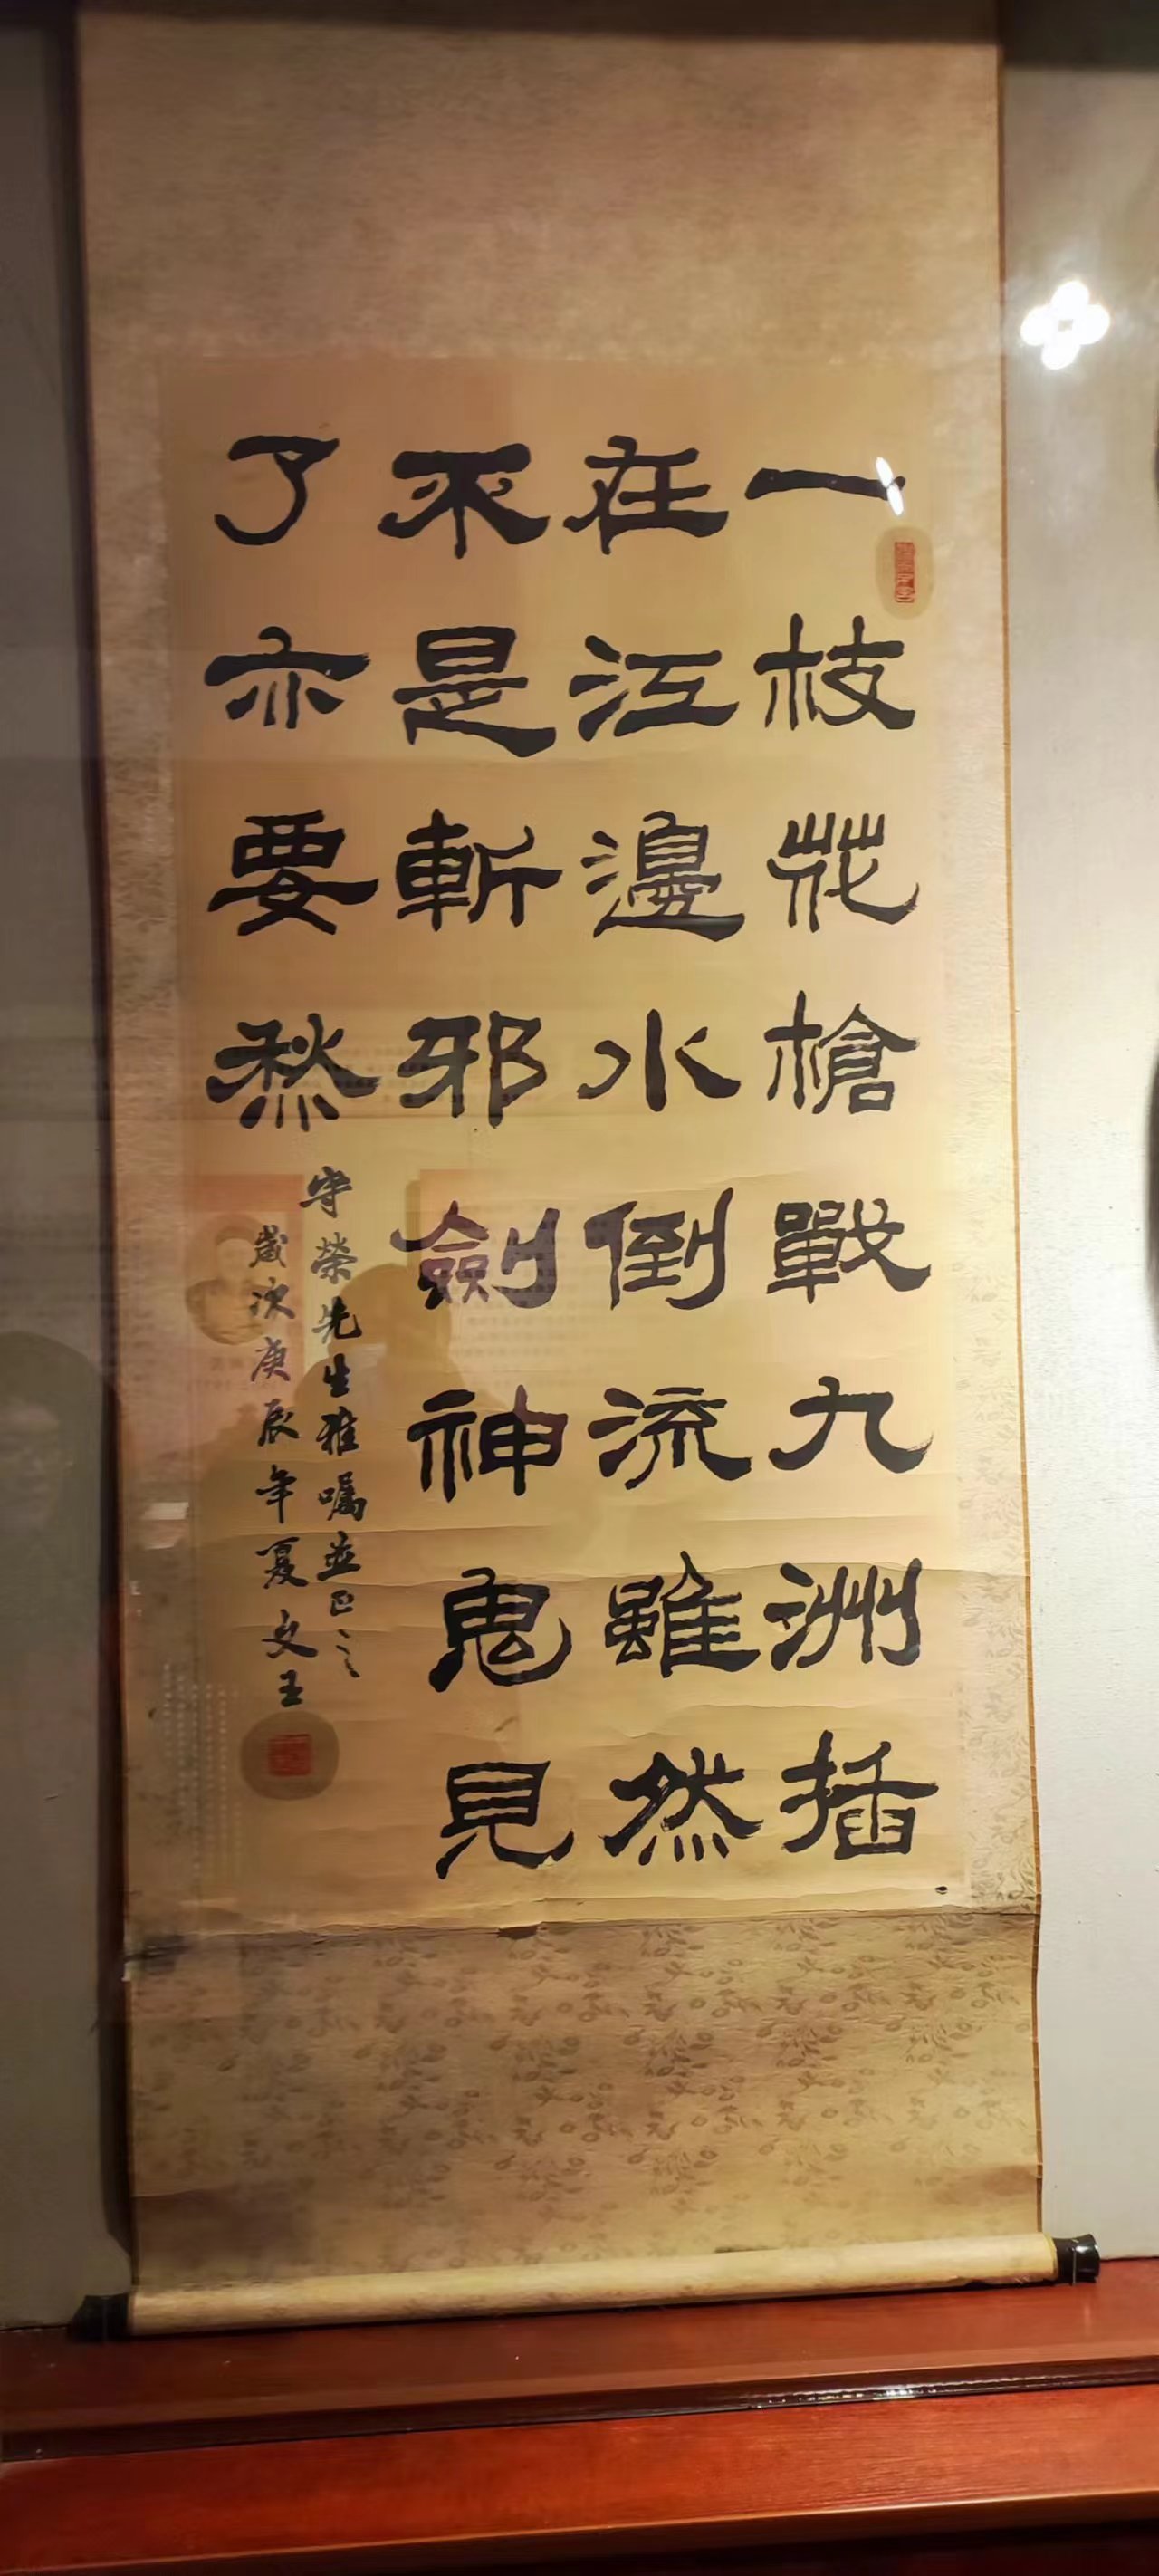 一枝花槍戰九洲插
在江邊水倒流雖然
不是斬邪劍神鬼見
了亦要愁
守榮先生雅嘱並正之
歲次庚辰年夏文王